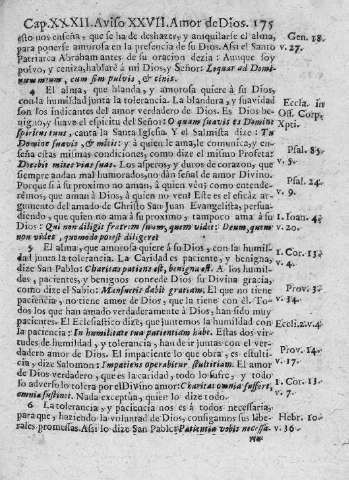 Cap. XXXII. Aviso XXVII. Amor de Dios. 175
esto nos enseña, que se ha de deshazer, y aniquilarse el alma,
para ponerse amorosa en la presencia de su Dios. Asi el Santo
Patriarca Abraham antes de su oracion dezia: Aunque soy
polvo, y ceniza, hablarè à mi Dios, y Señor: Loquar ad Domi-
num meum, cum sim pulvis, & cinis.
Gen. 18.
v. 27.
4 El alma, que blanda, y amorosa quiere à su Dios,
con la humildad junta la tolerancia. La blandura, y suavidad
son los indicantes del amor verdadero de Dios. Es Dios be-
nigno, y suave el espiritu del Señor: O quam suavis est Domine
spiritus tuus, canta la Santa Iglesia. Y el Salmista dize: Tu
Domine suavis, & mitis: y à quien le ama, le comunica, y en-
seña estas mismas condiciones, como dize el mismo Profeta:
Docebit mites vias suas. Los asperos, y duros de corazon, que
siempre andan mal humorados, no dàn señal de amor Divino.
Porque si à su proximo no aman, à quien ven: como entende-
rèmos, que aman à Dios, à quien no ven? Este es el eficàz ar-
gumento del amado de Christo San Juan Evangelista, persua-
diendo, que quien no ama à su proximo, tampoco ama à su
Dios: Qui non diligit fratrem suum, quem videt: Deum, quem
non videt, quomodo potest diligere?
Eccla. in
Off. Corp.
Xpti.
Psal. 85.
v. 5.
Psal. 24.
v. 9.
I. Ioan. 4.
v. 20.
5 El alma, que amorosa quiere à su Dios, con la humil-
dad junta la tolerancia. La Caridad es paciente, y benigna,
dize San Pablo: Charitas patiens est, benigna est. A los humil-
des, pacientes, y benignos concede Dios su Divina gracia,
como dize el Sabio: Mansuetis dabit gratiam. El que no tiene
paciencia, no tiene amor de Dios, que la tiene con èl. To-
dos los que han amado verdaderamente à Dios, han sido muy
pacientes. El Eclesiastico dize, que juntemos la humildad con
la paciencia: In humilitate tua patientiam habe. Estas dos virtu-
des de humildad, y tolerancia, han de ir juntas con el verda-
dero amor de Dios. El impaciente lo que obra, es estulti-
cia, dize Salomon: Impatiens operabitur stultitiam. El amor
de Dios verdadero, que es la caridad, todo lo sufre, y todo
lo adverso lo tolera por el Divino amor: Charitas omnia suffert,
omnia sustinet. Nada exceptùa, quien lo dize todo.
I. Cor. 13.
v. 4.
Prov. 3.
v. 34.
Eccli. 2. v. 4.
Prov. 14.
v. 17.
I. Cor. 13.
v. 7.
6 La tolerancia, y paciencia nos es à todos necessaria,
para que, haziendo la voluntad de Dios, consigamos sus libe-
rales promessas. Asi lo dize San Pablo: Patientia vobis necessa-
ria
Hebr. 10.
v. 36.